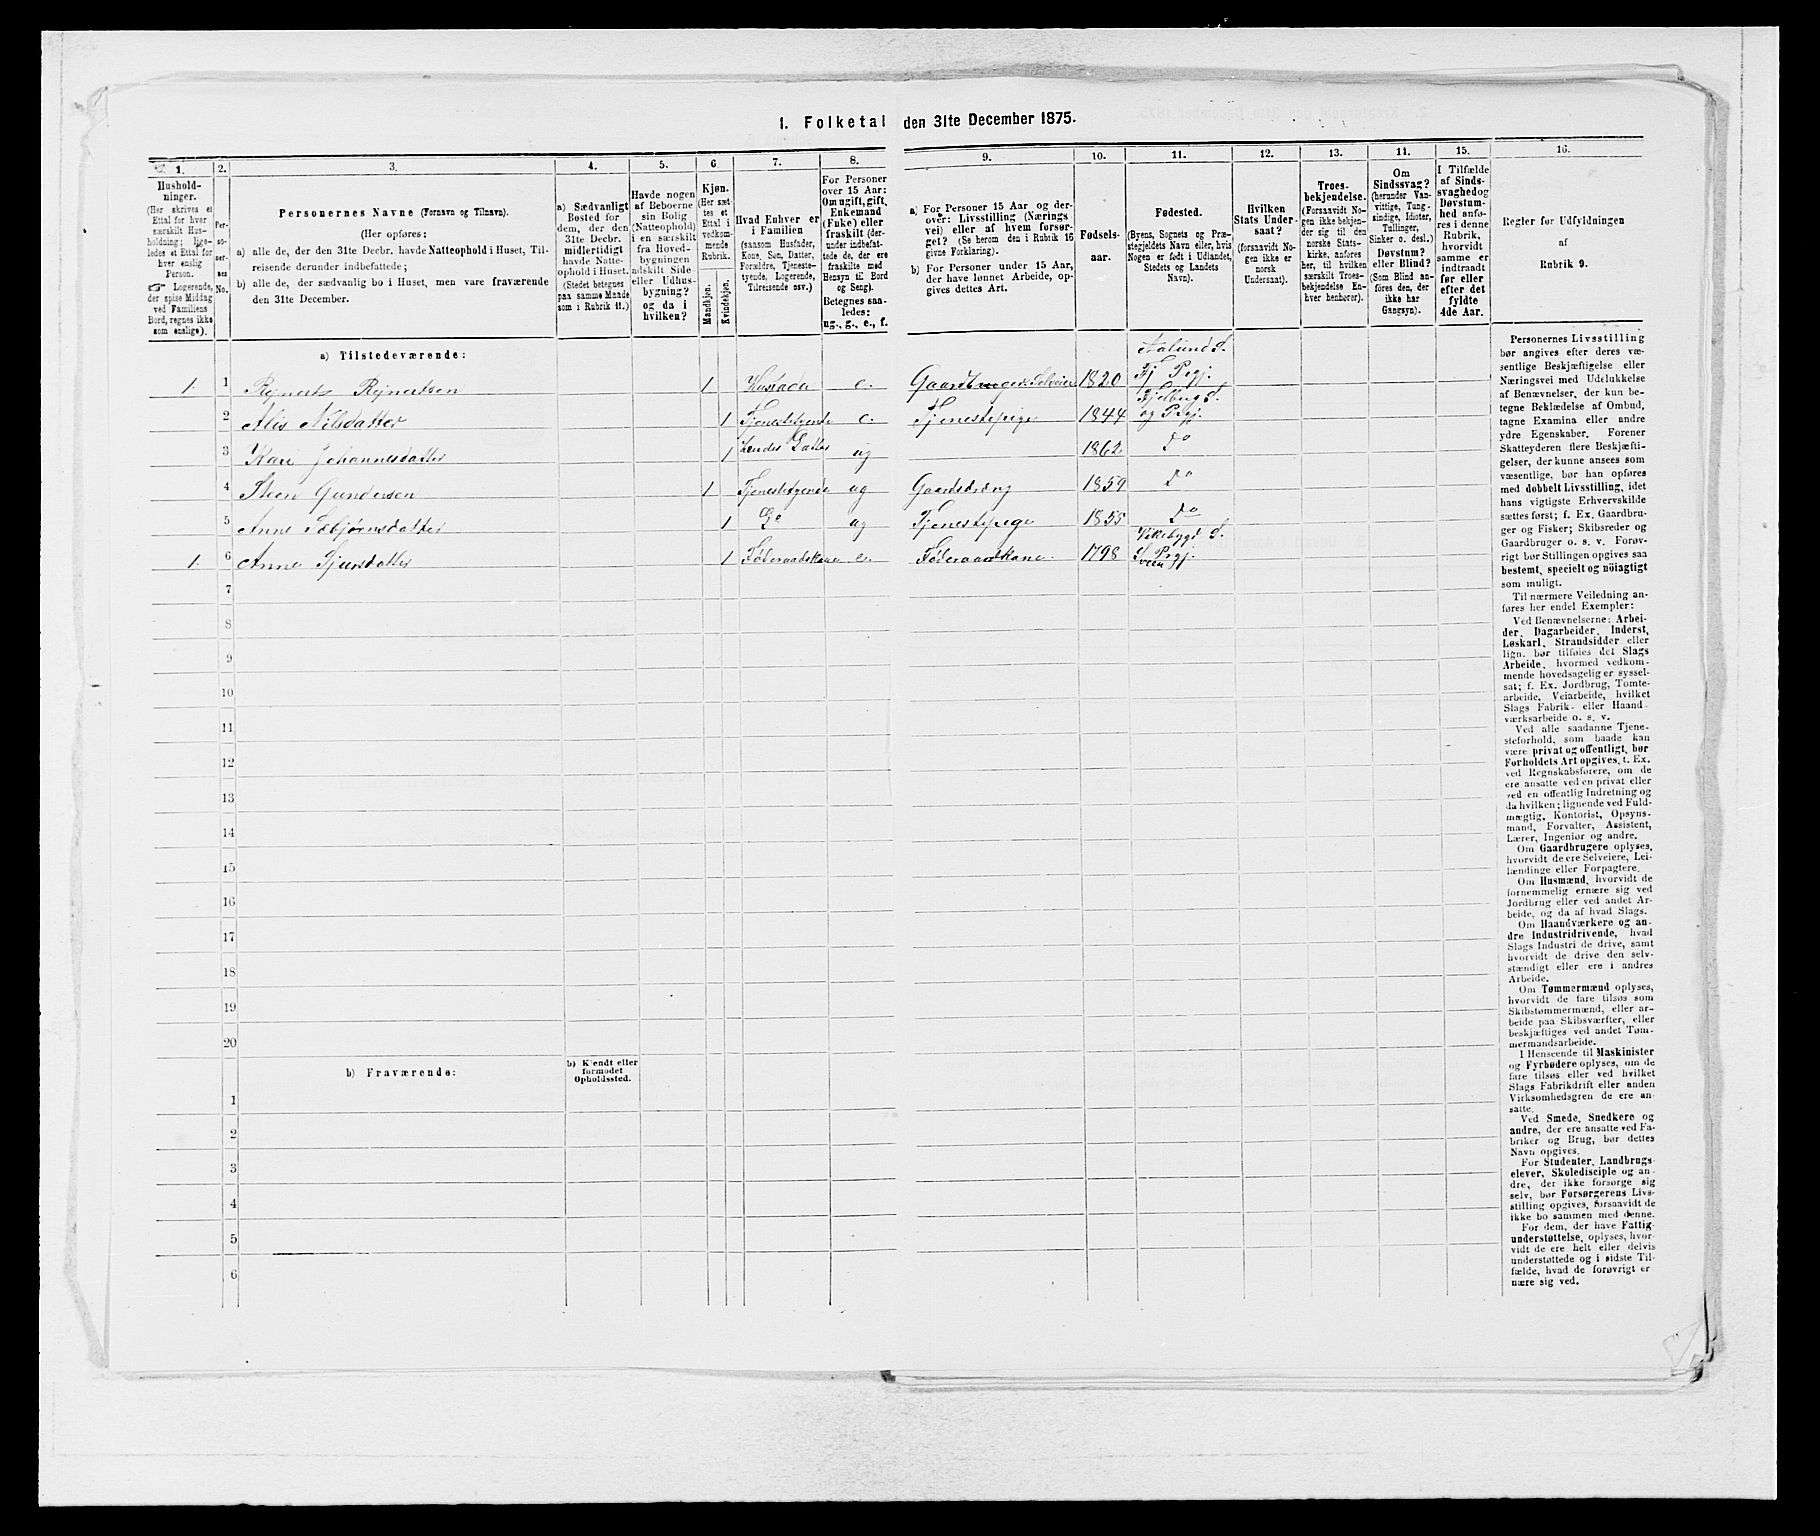 1. Folketal den 31te December 1875.
1.
Hushold-
ninger.
(Her skrives et
Ettal for hver
særskilt Hus-
holdning; lige-
ledes et Ettal for
hver enslig
Person.
Logerende,
der spise Middag
ved Familiens
Bord, regnes ikke
som enslige).
2.
Per-
so-
ner-
nes
No.
3.
Personernes Navne (Fornavn og Tilnavn).
(Her opføres:
a) alle de, der den 31te Decbr. havde Natteophold i Huset, Til-
reisende derunder indbefattede;
b) alle de, der sædvanlig bo i Huset, men vare fraværende
den 31te December.
4.
a) Sædvanligt
Bosted for
dem, der den
31te Decbr.
midlertidigt
havde Natte-
ophold i Huset.
(Stedet betegnes
paa samme Maade
som i Rubrik 11.)
5.
Havde nogen
af Beboerne
sin Bolig
(Natteophold)
i en særskilt
fra Hoved-
bygningen
adskilt Side-
eller Udhus-
bygning?
og da i
hvilken?
6
Kjøn.
(Her sæt-
tes et
Ettal i
vedkom-
mende
Rubrik.
Mandkjøn.
Kvindekjøn.
7.
Hvad Enhver er
i Familien
(saasom Husfader,
Kone, Søn, Datter,
Forældre, Tjeneste-
tyende, Logerende,
Tilreisende osv.)
8.
For Personer
over 15 Aar:
Om ugift, gift,
Enkemand
(Enke) eller
fraskilt (der-
under indbefat-
tede de, der ere
fraskilte med
Hensyn til Bord
og Seng).
Betegnes saa-
ledes:
ug., g., e., f.
9.
a) For Personer 15 Aar og der-
over: Livsstilling (Nærings-
vei) eller af hvem forsør-
get? (Se herom den i Rubrik 16
givne Forklaring).
b) For Personer under 15 Aar,
der have lønnet Arbeide, op-
gives dettes Art.
10.
Fødsels-
aar.
11.
Fødested.
(Byens, Sognets og Præ-
stegjeldets Navn eller, hvis
Nogen er født i Udlandet,
Stedets og Landets
Navn).
12.
Hvilken
Stats Under-
saat?
(forsaavidt No-
gen ikke er
norsk
Undersaat).
13.
Troes-
bekjendelse.
(Forsaavidt No-
gen ikke bekjen-
der sig til den
norske Stats-
kirke, anføres
her, til hvilken
særskilt Troes-
bekjendelse En-
hver henhører).
14.
Om
Sindssvag?
(herunder Van-
vittige, Tung-
sindige, Idioter,
Tullinger,
Sinker o. desl.)
Døvstum?
eller Blind?
(Som Blind an-
føres den, der
ikke har
Gangsyn).
15.
I Tilfælde
af Sinds-
svaghed og
Døvstum-
hed anfø-
res i denne
Rubrik,
hvorvidt
samme er
indtraadt
før eller
efter det
fyldte
4de Aar.
16.
Regler før Udfyldningen
af
Rubrik 9.
a) Tilstedeværende:
1. 1 Rejnert Rejnertsen 1 Husfader e. Gaardbruger Selveier 1820 Aalund S. Fj Prgj.
2 Alis Nilsdatter 1 Tjenestetyende e. Tjenestepige 1844 Fjelberg S. og Prgj.
3 Kari Johannesdatter 1 hendes Datter ug 1862 Do
4 Steen Gundersen 1 Tjenestetyende ug Gaardsdreng 1859 Do
5 Anne Sæbjørnsdatter 1 Do ug Tjenestepige 1855 Do
1. 6 Anne Sjursdatter 1 Føderaadskone e. Føderaadkone. 1798 Vikebygd S. Sveen Prgj.
7
8
9
10
11
12
13
14
15
16
17
18
19
20
b) Fraværende:
b) Kjendt eller
formodet
Opholdssted.
1
2
3
4
5
6
Personernes Livsstilling
bør angives efter deres væ-
sentlige Beskjæftigelse eller
Næringsvei med Udelukkelse
af Benævnelser, der kun be-
tegne Beklædelse af Ombud,
tagne Examina eller andre
ydre Egenskaber. Forener
Skatteyderen flere Beskjæfti-
gelser, der kunne ansees som
væsentlige, bør han opføres
med dobbelt Livsstilling, idet
hans vigtigste Erhvervskilde
sættes først; f. Ex. Gaardbru-
ger og Fisker; Skibsreder og
Gaardbruger o. s. v. Forøv-
rigt bør Stillingen opgives saa
bestemt, specielt og nöiagtigt
som muligt.
Til nærmere Veiledning an-
føres her endel Exempler:
Ved Benævnelserne: Arbei-
der, Dagarbeider, Inderst,
Løskarl, Strandsidder eller
lign. bør tilføies det Slags
Arbeide, hvormed vedkom-
mende hovedsagelig er syssel-
sat; f. Ex. Jordbrug, Tomte-
arbeide, Veiarbeide, hvilket
Slags Fabrik- eller Haand-
værksarbeide o. s. v.
Ved alle saadanne Tjene-
steforhold, som baade kan
være privat og offentligt, bør
Forholdets Art opgives, t. Ex.
ved Regnskabsførere, om de
ere ansatte ved en privat eller
ved en offentlig Indretning og
da hvilken; lignende ved Fuld-
mægtig, Kontorist, Opsyns-
mand, Forvalter, Assistent,
Lærer, Ingeniør og andre.
Om Gaardbrugere oplyses,
hvorvidt de ere Selveiere, Lei-
lændinge eller Forpagtere.
Om Husmænd, hvorvidt de
fornemmelig ernære sig ved
Jordbrug eller ved andet Ar-
beide, og da af hvad Slags.
Om Haandværkere og an-
dre Industridrivende, hvad
Slags Industri de drive, samt
hvorvidt de drive den selv-
stændigt eller ere i andres
Arbeide.
Om Tømmermænd oplyses,
hvorvidt de fare tilsøs som
Skibstømmermænd, eller ar-
beide paa Skibsværfter, eller
beskjæftiges ved andet Tøm-
mermandsarbeide.
I Henseende til Maskinister
og Fyrbødere oplyses, om de
fare tilsøs eller ved hvilket
Slags Fabrikdrift eller anden
Virksomhedsgren de ere an-
satte.
Ved Smede, Snedkere og
andre, der ere ansatte ved Fa-
briker og Brug, bør dettes
Navn opgives.
For Studenter, Landbrugs-
elever, Skoledisciple og an-
dre, der ikke forsørge sig
selv, bør Forsørgerens Livs-
stilling opgives, forsaavidt de
ikke bo sammen med denne.
For dem, der have Fattig-
understøttelse, oplyses, hvor-
vidt de ere helt eller delvis
understøttede og i sidste Til-
fælde, hvad de forøvrigt er
nære sig ved.